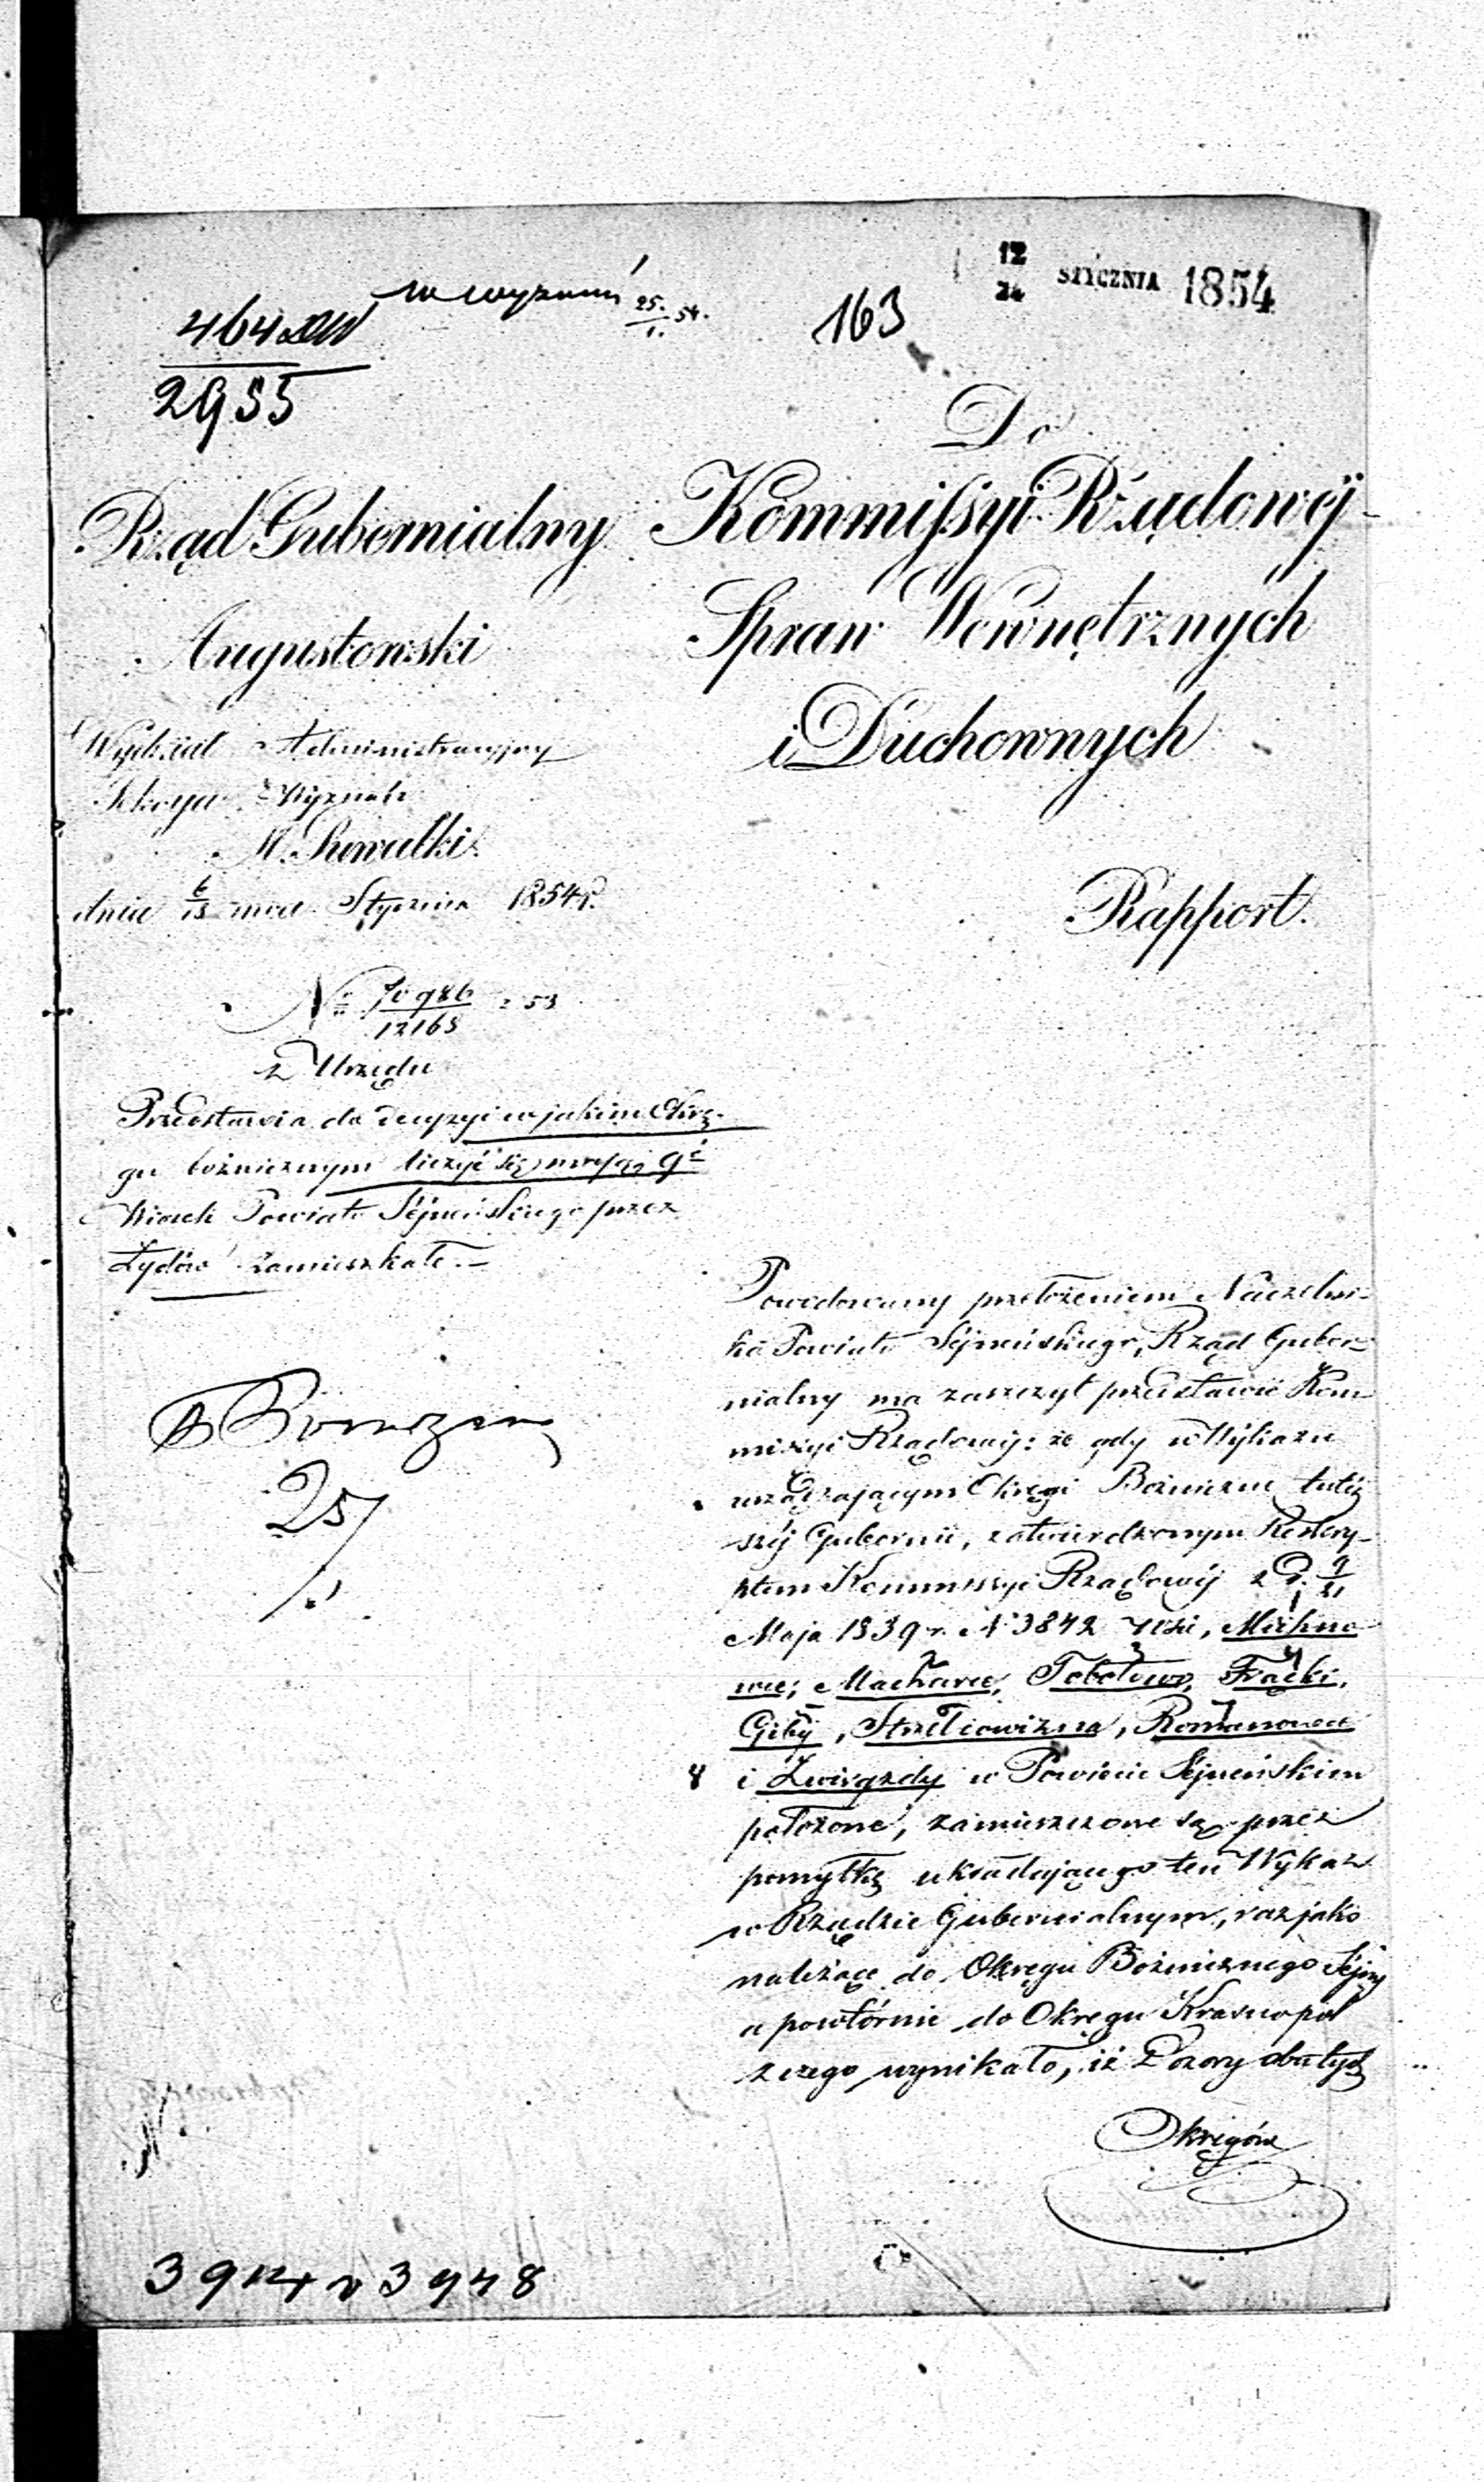 12
24 STYCZNIA 1854
w wyznań 25/1. 54.
163
464
2935
Rząd Gubernialny
Augustowski
Wydział Administracyjny
Sekcya Wyznań
M. Suwałki.
dnia 6/18 mca Stycznia 1854 r.
N° 70986/12168 : 53
z Urzędu
Przedstawia do decyzyi w jakim Okrę-
gu bóżnicznym liczyć się mają
Wiosek Powiatu Sejneńskiego przez
Żydów zamieszkałe.—
25/1
Do
Kommissyi Rządowéj
Spraw Wewnętrznych
i Duchownych
Rapport.
Powodowany przełożeniem Naczelni-
ka Powiatu Sejneńskiego, Rząd Guber-
nialny ma zaszczyt przedstawić Kom
missyi Rządowéj: że gdy w Wykazu
urządzającym Okręgi Bóżniczne tutéj
széj Gubernii, zatwierdzonym Reskry-
ptem Kommissyi Rządowéj z d. 9/21
Maja 1839 r. N 3842 Wsi, 1 Michno
wce; 2 Macharce, 3 Tobołowo, 4 Frącki,
5 Giby, 6 Strzelcowizna, 7 Romanowce
8 i Żwirgzdy w Powiecie Sejneńskim
położone, zamieszczone są przez
pomyłkę układającego ten Wykaz
w Rządzie Gubernialnym, raz jako
należące do Okręgu Bóżnicznego Sejny
a powtórnie do Okręgu Krasnopol
z czego wynikało, iż Dozory obu tych
Okręgów